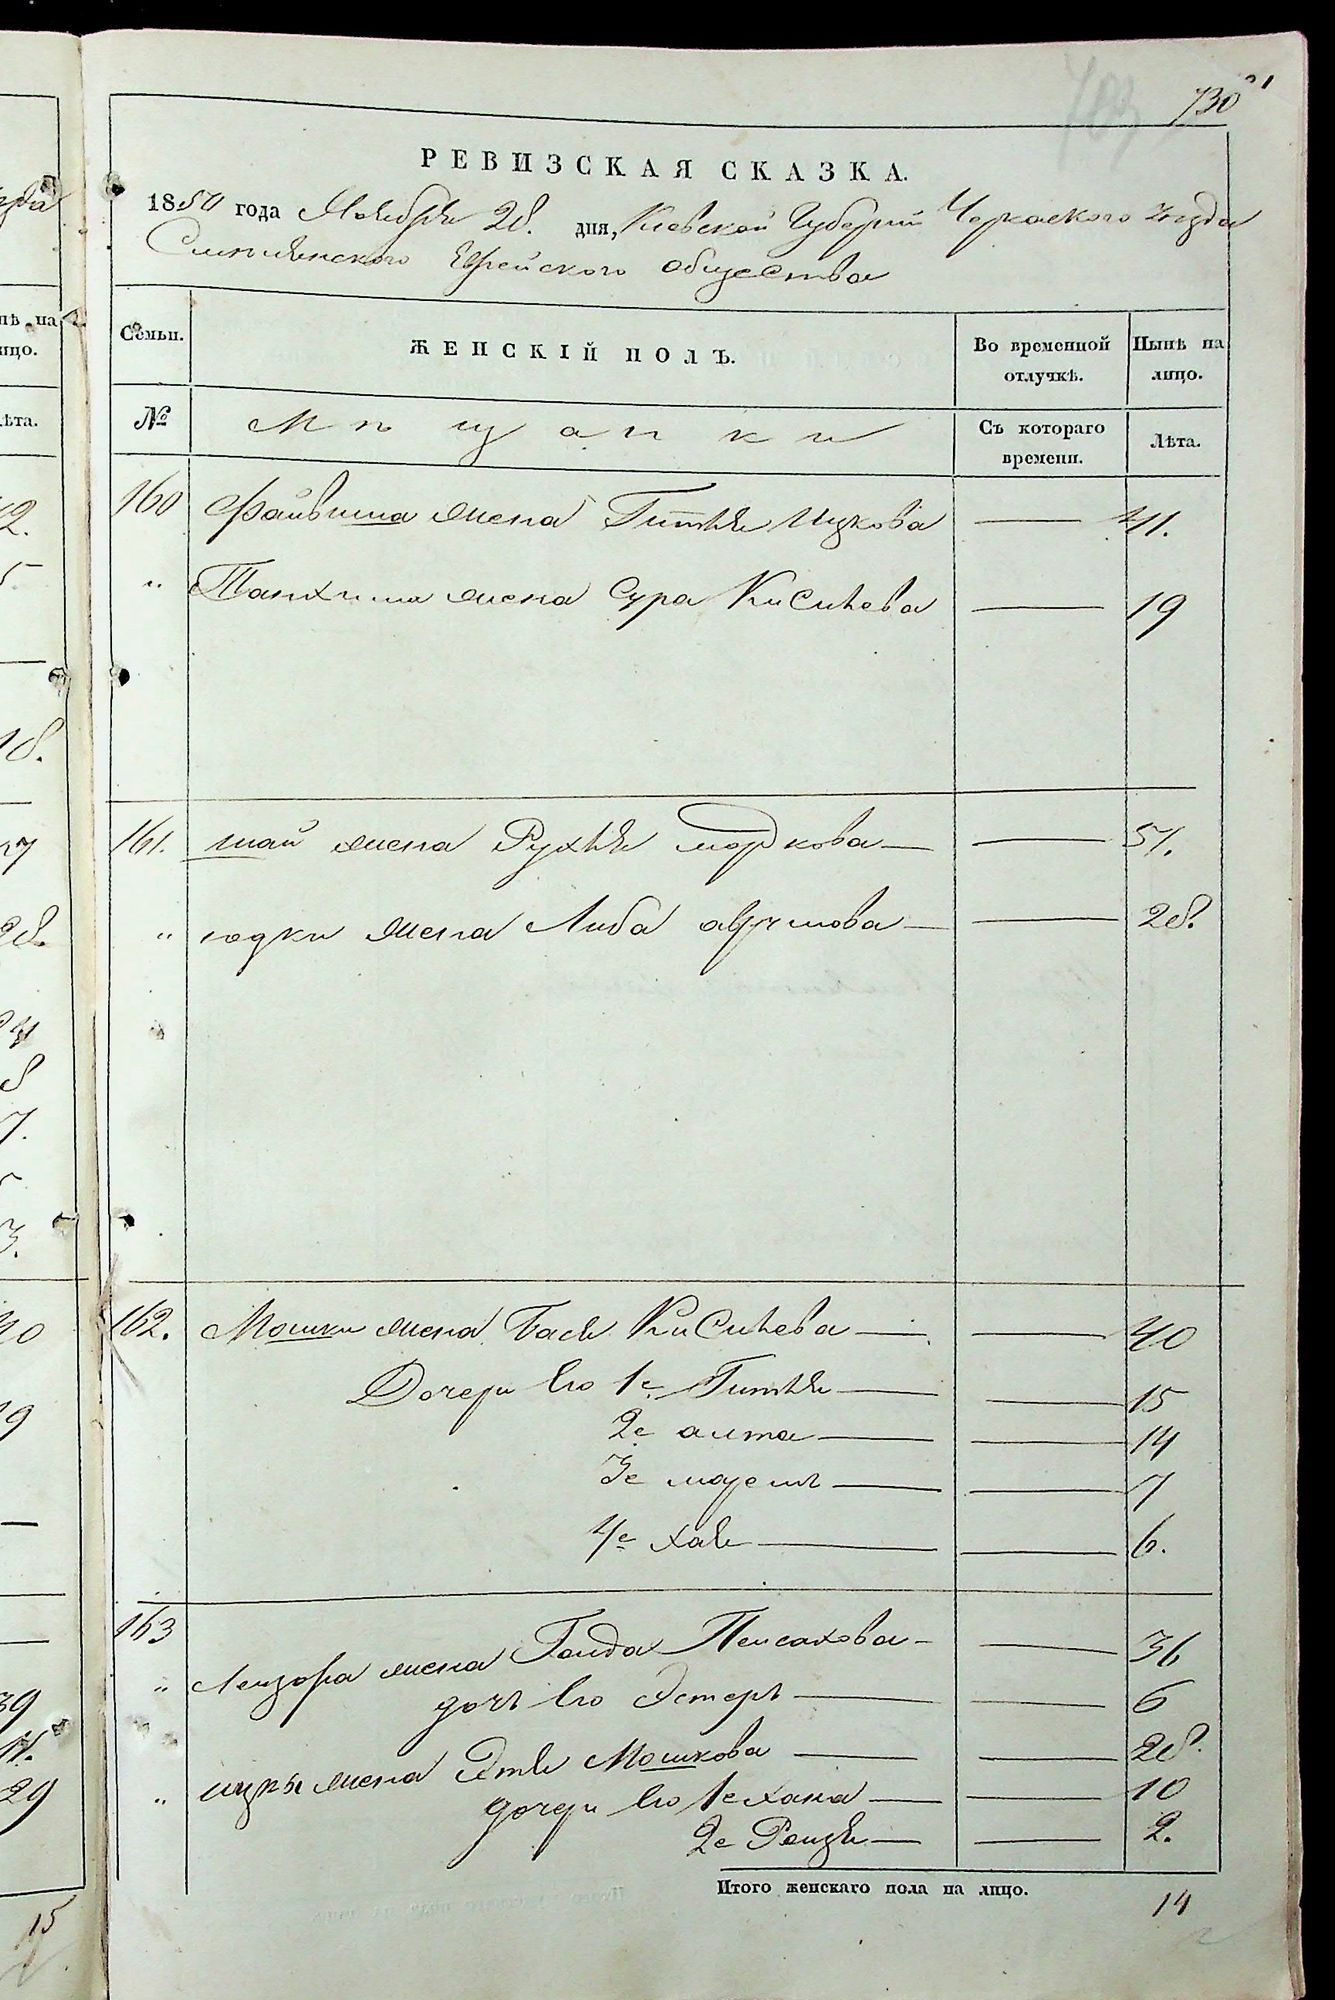 703
730
РЕВИЗСКАЯ СКАЗКА.
1850 года Ноября 28. дня, Киевской Губернiи Черкаского уѣзда
Смѣлянского Еврейского общества
Семьи. ЖЕНСКIЙ ПОЛЪ. Во временной отлучкѣ. Нынѣ на лицо.
№ Мѣщанки Съ котораго времени. Лѣта.
160 Файвиша жена Гитля Ицкова — 41.
" Танхима жена Сура Кисилева — 19
161. шаи жена Рухля мордкова — — 51.
" юдки жена Либа аврумова — — 28.
162. Мошки жена Бася Кисилева — — 40
Дочери его 1е Гитля — — 15
2е алта — — 14
3е маремъ — — 7
4е хая — — 6.
163
" Лейзора жена Гольда Пейсахова — — 36
дочь его Эстеръ — — 6
" ицка жена Этля Мошкова — — 28.
дочери его 1е хана — — 10
2е Рейзя — — 2.
Итого женскаго пола на лицо. 14